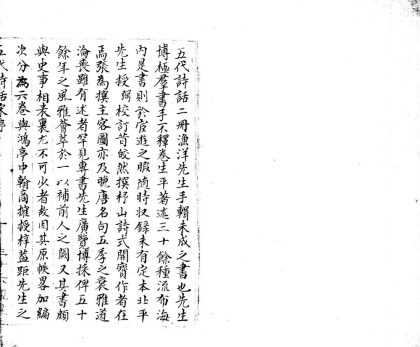 五代詩話二冊漁洋先生手輯未成之書也先生
博極羣書手不釋卷生平著述三十餘種流布海
內是書則於宦遊之暇隨時收録未有定本北平
先生授弼校訂昔皎然撰杼山詩式開寶作者在
焉張為撰主客圖亦及晚唐名句五季之衰雅道
淪喪雖有述者罕見專書先生廣覽博採俾五十
餘年之風雅薈萃於一以補前人之闕又其書頗
與史事相表裏尤不可少者故因其原帙畧加編
次分為六卷與鴻亭中翰商搉授梓蓋距先生之
五代詩話